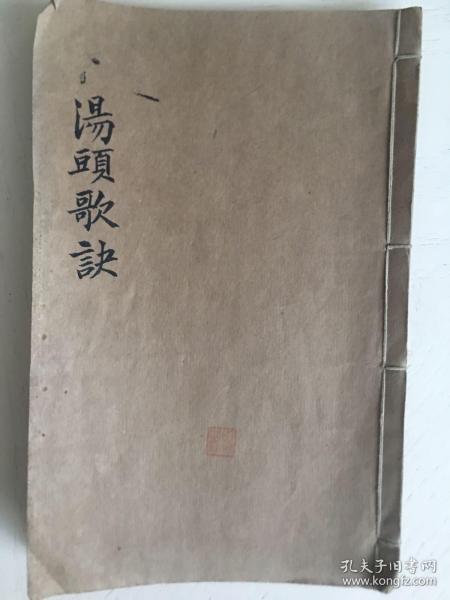 湯頭歌訣
孔夫子旧书网
www.kongfz.com